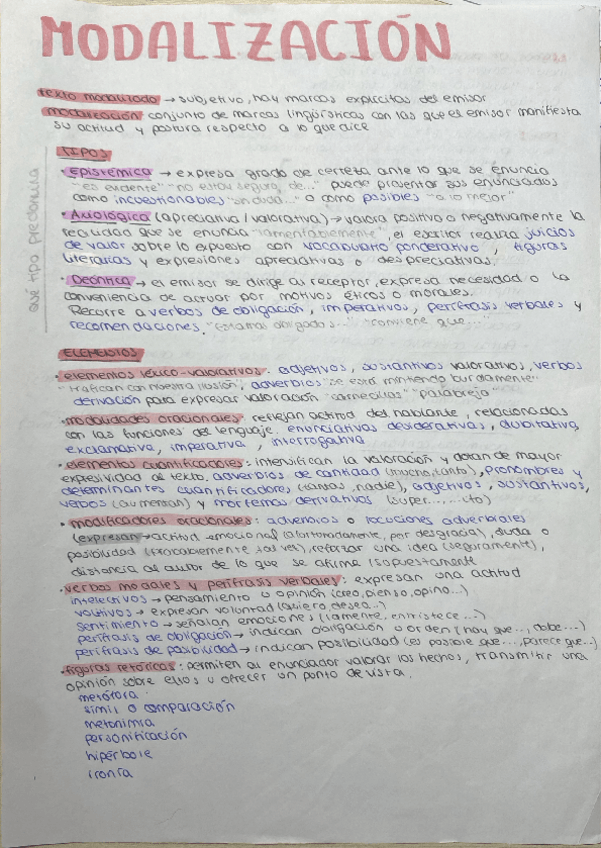 MODALIZACIÓN
texto modalizado → subjetivo, hay marcas explícitas del emisor
modalización conjunto de marcas lingüísticas con las que el emisor manifiesta
su actitud y postura respecto a lo que dice
TIPOS
qué tipo predomina
· Epistémica → expresa grado de certeza ante lo que se enuncia
"es evidente" "no estoy segura de..." puede presentar sus enunciados
como incuestionables "sin duda..." o como posibles "a lo mejor"
· Axiológica (apreciativa / valorativa) → valora positivo o negativamente la
realidad que se enuncia "lamentablemente", el escritor realiza juicios
de valor sobre lo expuesto con vocabulario ponderativo, figuras
literarias y expresiones apreciativas o despreciativas.
· Deóntica → el emisor se dirige al receptor, expresa necesidad o la
conveniencia de actuar por motivos éticos o morales.
Recorre a verbos de obligación, imperativos, perífrasis verbales y
recomendaciones. "Estamos obligados..." "conviene que..."
ELEMENTOS
· elementos léxico-valorativos: adjetivos, sustantivos valorativos, verbos
"trafican con nuestra ilusión", adverbios "se está mintiendo burdamente"
derivación para expresar valoración "carnecillas" "palabreja"
· modalidades oracionales: reflejan actitud del hablante, relacionadas
con las funciones del lenguaje. enunciativas desiderativas, dubitativa,
exclamativa, imperativa, interrogativa
· elementos cuantificadores: intensifican la valoración y dotan de mayor
expresividad al texto. adverbios de cantidad (mucho, tanto), pronombres y
determinantes cuantificadores (tantos, nadie), adjetivos, sustantivos,
verbos (aumentan) y morfemas derivativos (super..., ...ito)
· modificadores oracionales: adverbios o locuciones adverbiales
(expresan → actitud emocional (afortunadamente, por desgracia), duda o
posibilidad (probablemente tal vez), reforzar una idea (seguramente),
distancia al autor de lo que se afirma (supuestamente
· verbos modales y perífrasis verbales: expresan una actitud
intelectivos → pensamiento u opinión (creo, pienso, opino...)
volitivos → expresan voluntad (quiero, deseo...)
sentimiento → señalan emociones (lamente, entristece...)
perífrasis de obligación → indican obligación u orden (hay que..., debe...)
perífrasis de posibilidad → indican posibilidad (es posible que..., parece que...)
· figuras retóricas: permiten al enunciador valorar los hechos, transmitir una
opinión sobre ellos u ofrecer un punto de vista.
metáfora
símil o comparación
metonimia
personificación
hipérbole
ironía